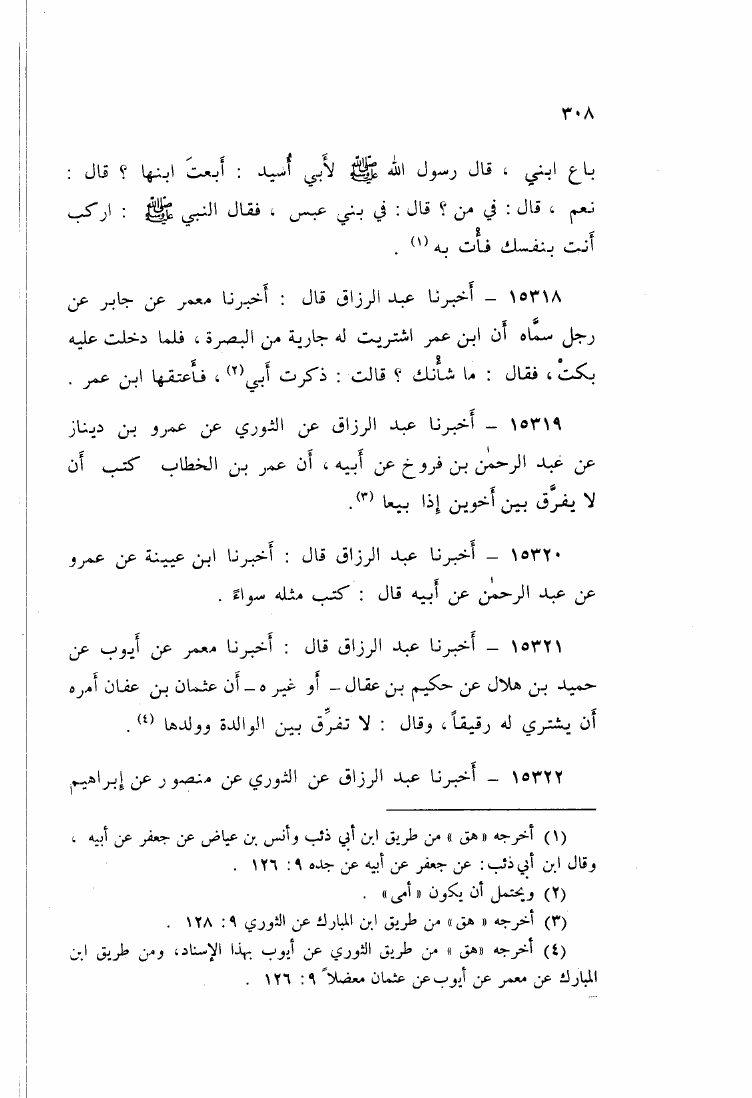 ٣٠٨
باع ابني ، قال رسول الله ﷺ لأبي أُسيد : أبعتَ ابنها ؟ قال :
نعم ، قال : في من ؟ قال : في بني عبس ، فقال النبي ﷺ : اركب
أنت بنفسك فأْت به (١) .
١٥٣١٨ – أخبرنا عبد الرزاق قال : أخبرنا معمر عن جابر عن
رجل سمَّاه أن ابن عمر اشتريت له جارية من البصرة ، فلما دخلت عليه
بكتْ ، فقال : ما شأْنك ؟ قالت : ذكرت أبي (٢) ، فأعتقها ابن عمر .
١٥٣١٩ – أخبرنا عبد الرزاق عن الثوري عن عمرو بن ديناز
عن عبد الرحمٰن بن فروخ عن أبيه ، أن عمر بن الخطاب كتب أن
لا يفرَّق بين أخوين إذا بيعا (٣) .
١٥٣٢٠ – أخبرنا عبد الرزاق قال : أخبرنا ابن عيينة عن عمرو
عن عبد الرحمٰن عن أبيه قال : كتب مثله سواءً .
١٥٣٢١ – أخبرنا عبد الرزاق قال : أخبرنا معمر عن أيوب عن
حميد بن هلال عن حكيم بن عقال – أو غيره – أن عثمان بن عفان أمره
أن يشتري له رقيقاً ، وقال : لا تفرِّق بين الوالدة وولدها (٤) .
١٥٣٢٢ – أخبرنا عبد الرزاق عن الثوري عن منصور عن إبراهيم
(١) أخرجه « هق » من طريق ابن أبي ذئب وأنس بن عياض عن جعفر عن أبيه ،
وقال ابن أبي ذئب : عن جعفر عن أبيه عن جده ٩ : ١٢٦ .
(٢) ويحتمل أن يكون « أمى » .
(٣) أخرجه « هق » من طريق ابن المبارك عن الثوري ٩ : ١٢٨ .
(٤) أخرجه « هق » من طريق الثوري عن أيوب بهذا الإسناد، ومن طريق ابن
المبارك عن معمر عن أيوب عن عثمان معضلاً ٩ : ١٢٦ .